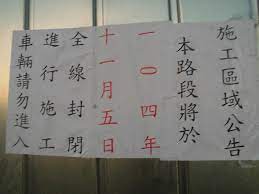 施工區域公告
本路段將於
一〇四年
十一月五日
全線封閉
進行施工
車輛請勿進入